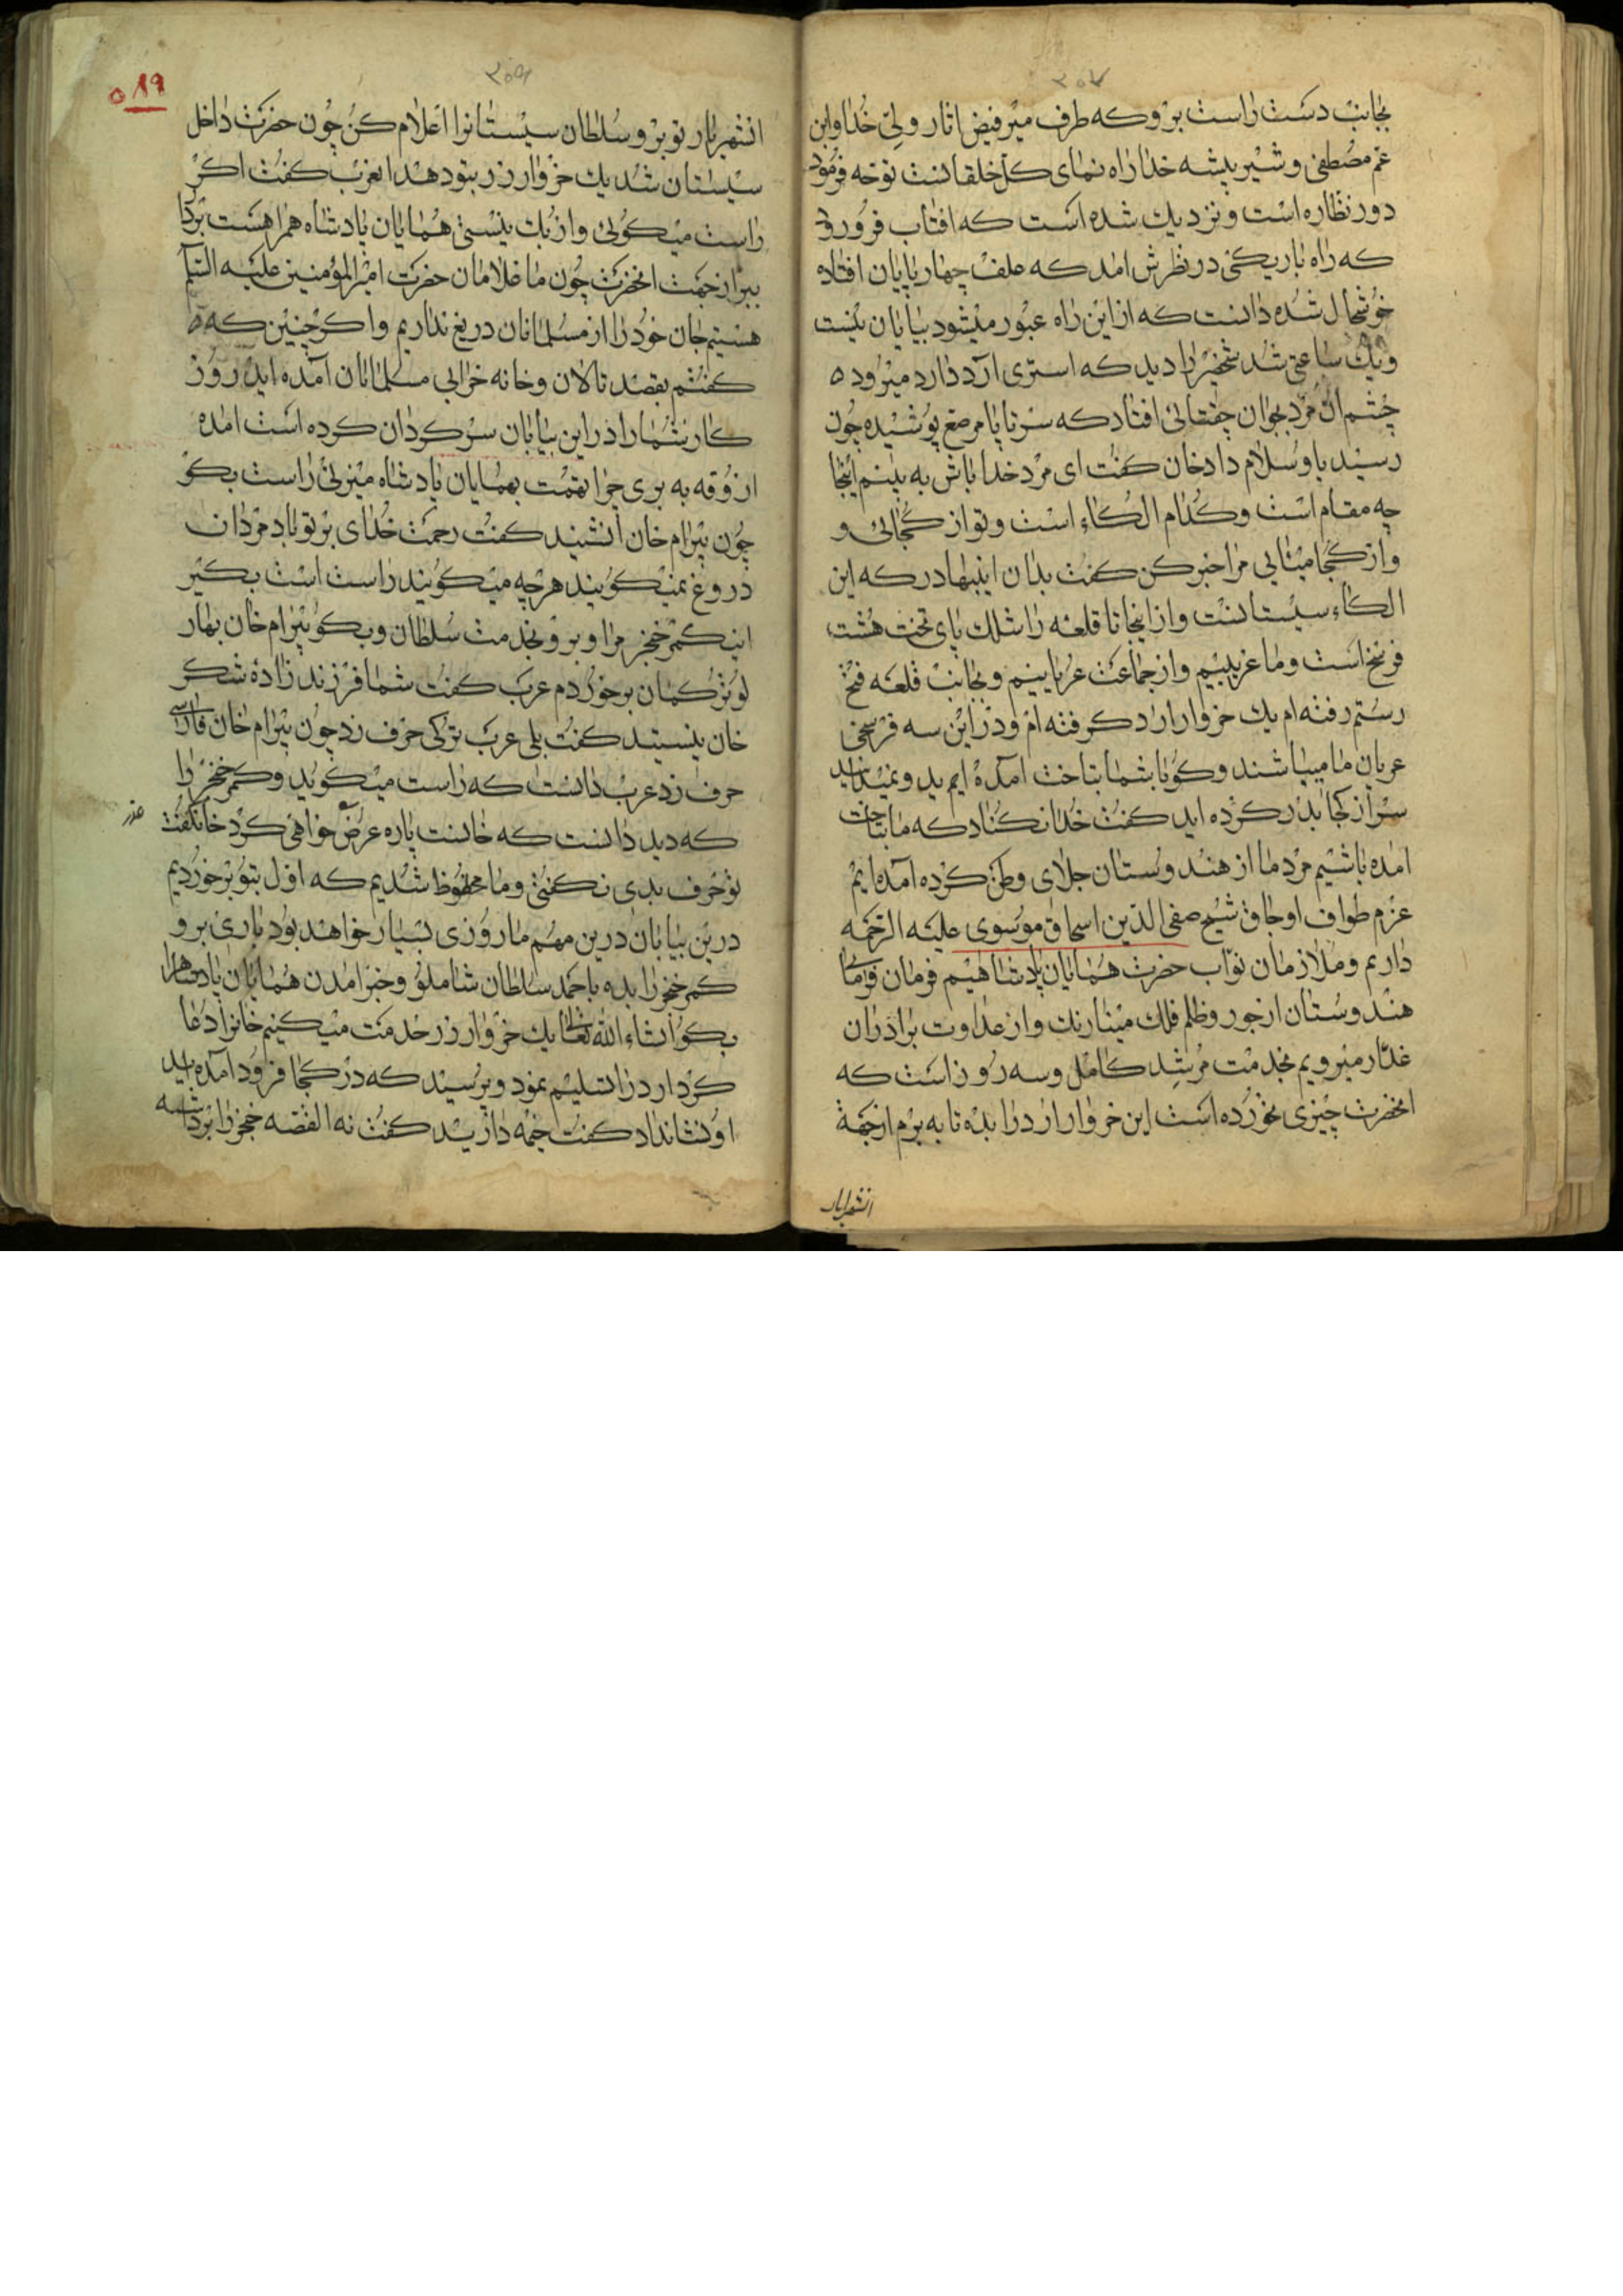 ۳۰۷
بجانب دست راست برو که طرف میر فیض اثار ولی خدا وابن
عم مصطفی و شیر بیشه خدا راه نمای کل خلقانست توجه فرمود
دور نظاره است و نزدیك شده است که افتاب فرورود
که راه باریکی در نظرش امد که علف چهار پایان افتاده
خوشحال شده دانست که از این راه عبور میشود بیابان نیست
ویك ساعتی شد شخصیرا دید که استری آرد دارد میرود
چشم ان مرد بجوان چغتائی افتاد که سرتا پا مرصع پوشیده چون
رسید باو سلام داد خان کفت ای مرد خدا باش به بینم اینجا
چه مقام است و کدام الکاء است و تو از کجائی و
واز کجا میائی مرا خبر کن کفت بدان ایبهادر که این
الکاء سیستانست و از اینجا تا قلعه راشلك پای تخت هشت
فرسخ است و ما عربیم و از جماعت عربانیم و بجانب قلعه فتح
رستم رفته ام یك خروار ارد کرفته ام و در این سه فرسخی
عربان ما میباشند و کویا بشما بتاخت آمده اید و نمیدانید
سر از کجا بدر کرده اید کفت خدا نکناد که ما بتاخت
امده باشیم مرد ما از هندوستان جلای وطن کرده آمده ایم
عزم طواف اوجاق شیخ صفی الدین اسحاق موسوی علیه الرحمه
داریم و ملازمان نواب حضرت همایان پادشاهیم فرمان فرمای
هندوستان از جور و ظلم فلك مینارنك و از عداوت برادران
غدار میرویم بخدمت مرشد کامل و سه روز است که
انحضرت چیزی نخورده است این خروار ارد را بده تا به برم از جهة
انشهریار
۳۰۸
۵۸۹
انشهریار تو برو سلطان سیستانرا اعلام کن چون حضرت داخل
سیستان شد یك خروار زر بتو دهد انعرب کفت اکر
راست میکوئی و ازبك نیستی همایان پادشاه همراه است بردار
ببر از جهت انحضرت چون ما غلامان حضرت امیرالمؤمنین علیه السلام
هستیم جان خود را از مسلمانان دریغ نداریم و اکر چنین که
کفتم بقصد تالان و خانه خرابی مسلمانان آمده اید روز
کار شما را در این بیابان سرکردان کرده است امده
ازوقه به بری چرا تهمت بهمایان پادشاه میزنی راست بکو
چون بیرام خان انشنید کفت رحمت خدای بر تو باد مردان
دروغ نمیکویند هرچه میکویند راست است بکیر
این کمر خنجر مرا و برو بخدمت سلطان و بکو بیرام خان بهار
لو ترکمان برخوردم عرب کفت شما فرزند زاده شکر
خان نیستید کفت بلی عرب ترکی حرف زد چون بیرام خان فارسی
حرف زد عرب دانست که راست میکوید و کمر خنجر را
که دید دانست که خانست پاره عرض خواهی کرد خان کفت
عذر
تو حرف بدی نکفتی و ما محظوظ شدیم که اول بتو برخوردیم
درین بیابان درین مهم ما روزی بسیار خواهد بود باری برو
کمر خنجر را بده باحمد سلطان شاملو و خبر امدن همایان پادشاهرا
بکو انشاء الله تعالی یك خروار زر خدمت میکنیم خانرا دعا
کرد ارد را تسلیم نمود و پرسید که در کجا فرود آمده اید
او نشانداد کفت خیمه دارید کفت نه القصه خنجر را برداشته